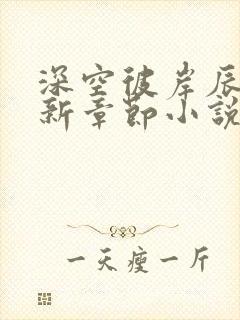 深空彼岸辰
新章節小說
一天瘦一斤